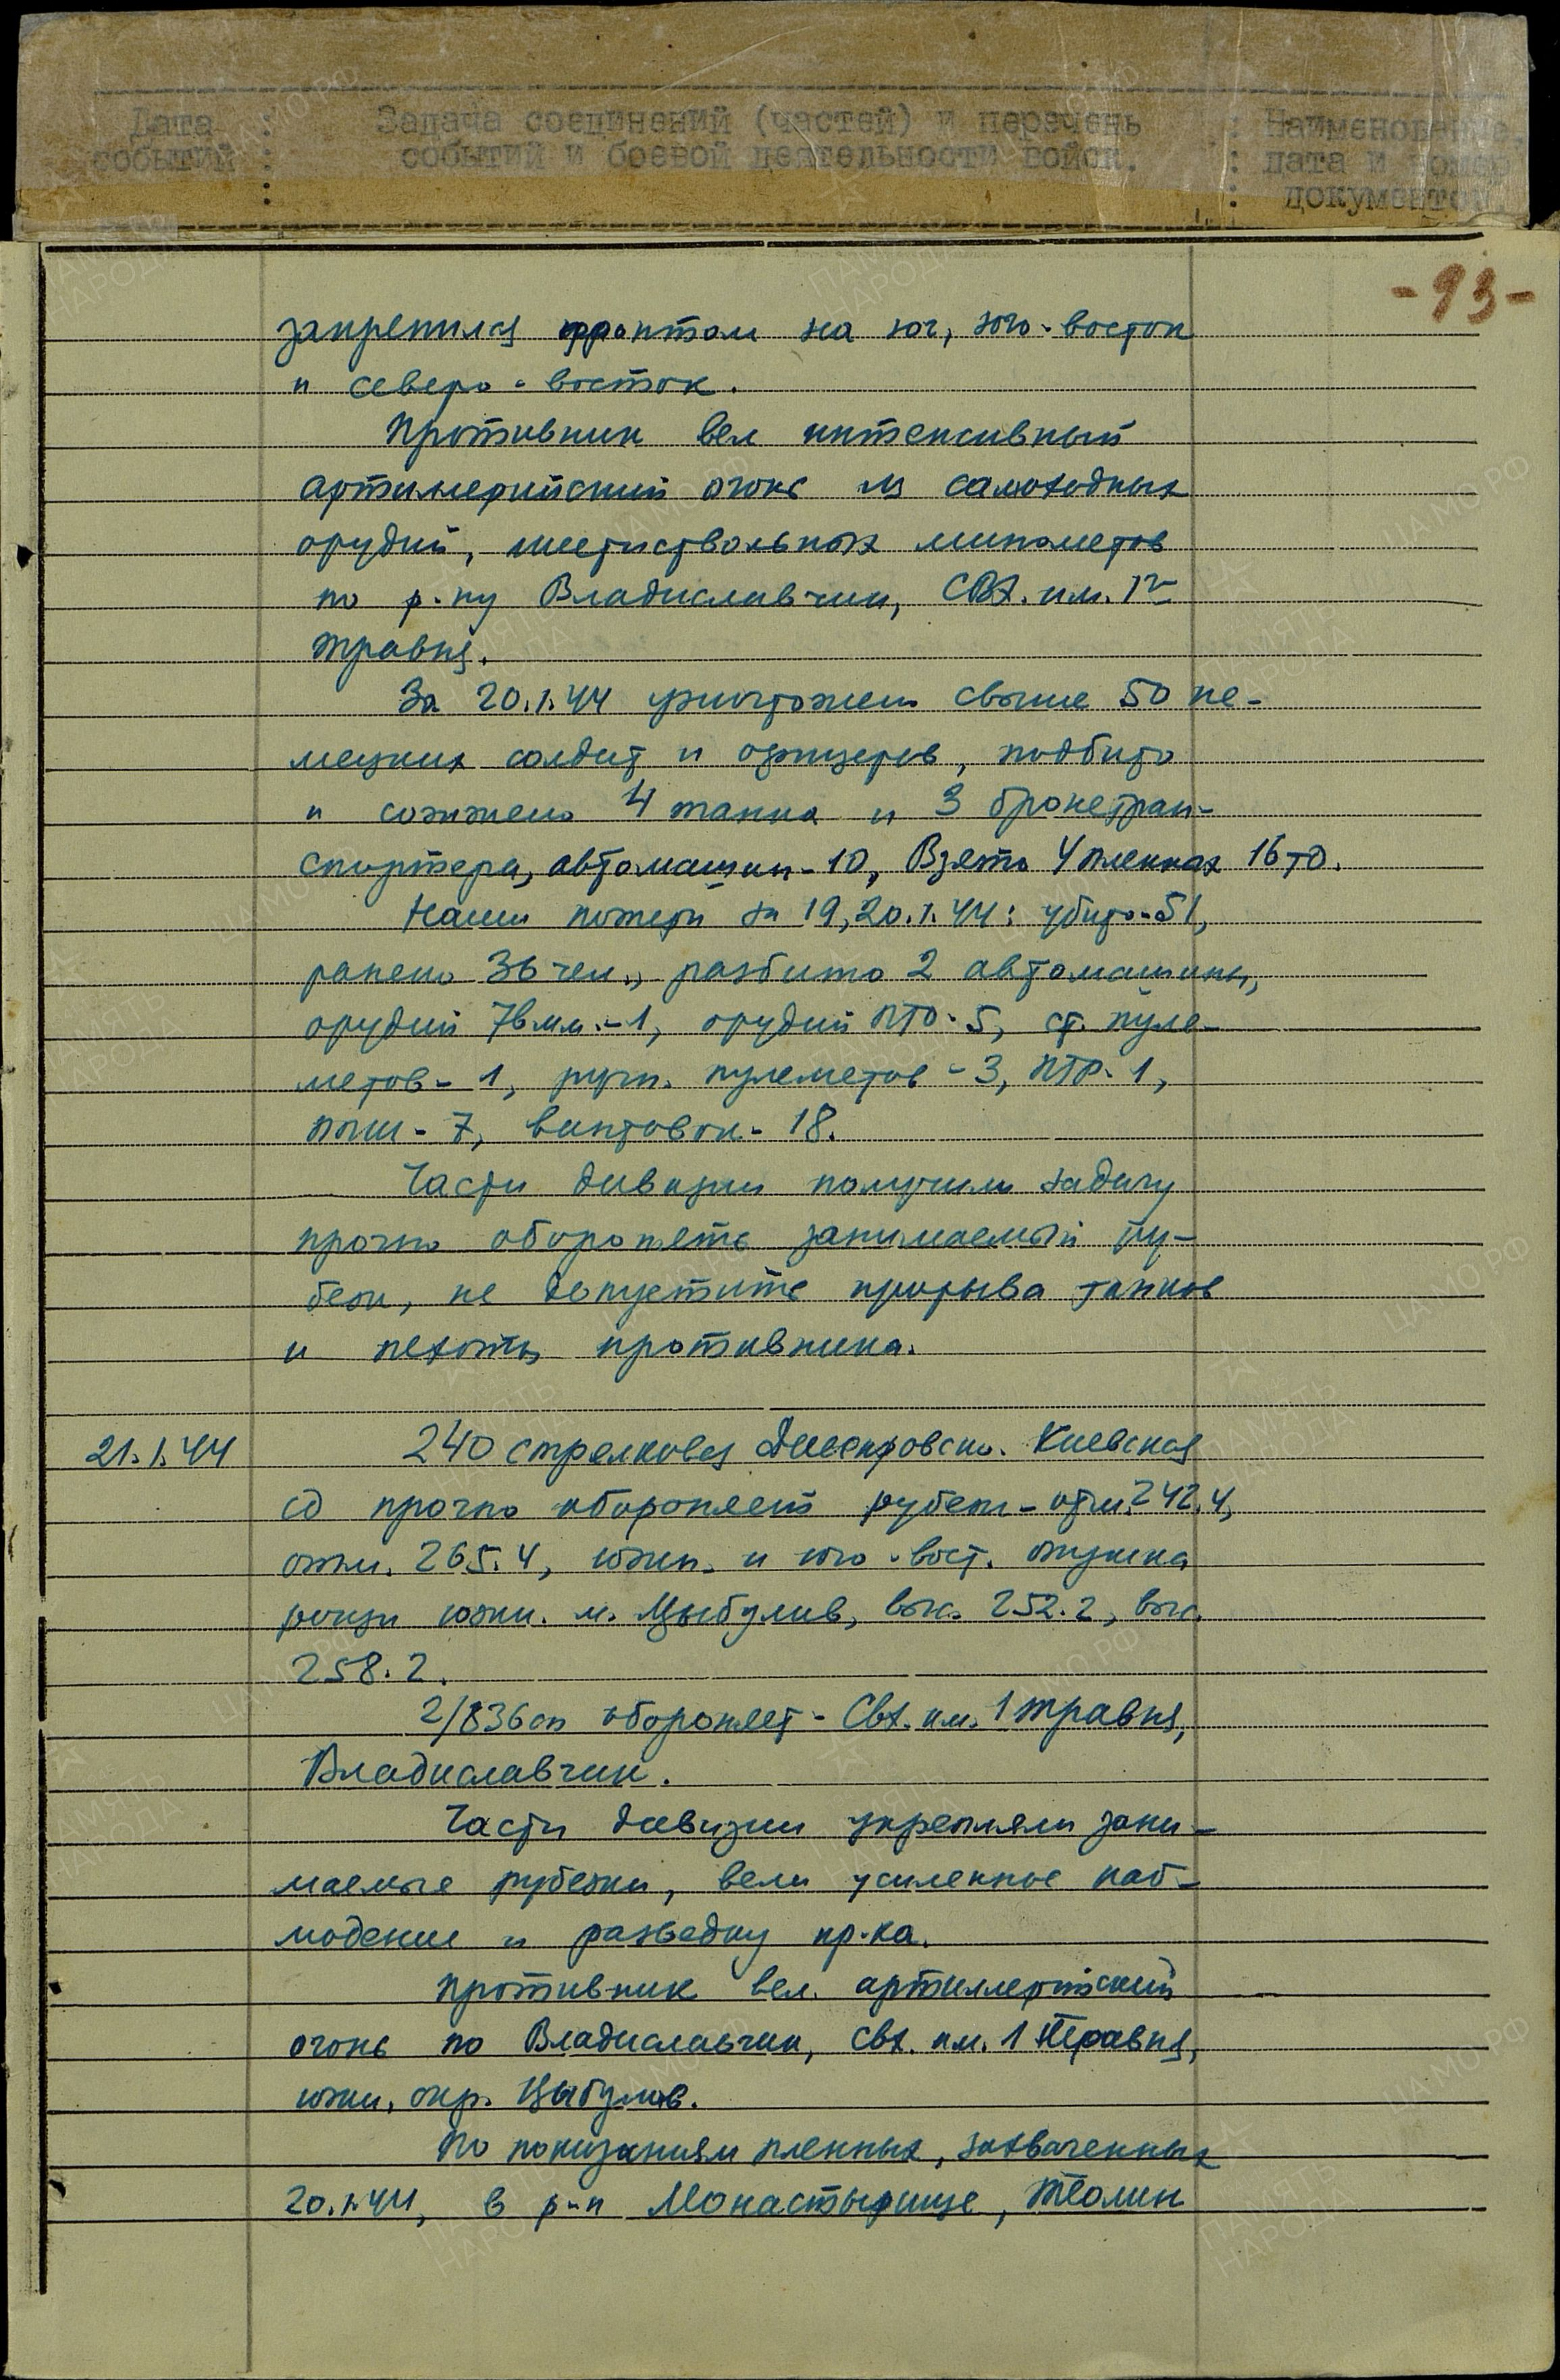 Дата событий : Задача соединений (частей) и перечень событий и боевой деятельности войск. : Наименование, дата и номер документов.
-93-
закрепился фронтом на юг, юго-восток
и северо-восток.
Противник вел интенсивный
артиллерийский огонь из самоходных
орудий, шестиствольных минометов
по р-ну Владиславчик, СВХ. им. 1го
травня.
За 20.1.44 уничтожено свыше 50 не-
мецких солдат и офицеров, подбито
и сожжено 4 танка и 3 бронетран-
спортера, автомашин-10, Взято 4 пленных 16 тд.
Наши потери за 19,20.1.44: убито-51,
ранено 36 чел., разбито 2 автомашины,
орудий 76мм.-1, орудий ПТО-5, ст. пуле-
метов-1, ручн. пулеметов-3, ПТР-1,
ППШ-7, винтовок-18.
Части дивизии получили задачу
прочно оборонять занимаемый ру-
беж, не допустить прорыва танков
и пехоты противника.
21.1.44 240 стрелковая Днепровско. Киевская
сд прочно обороняет рубеж-отм. 242.4,
отм. 265.4, южн. и юго-вост. опушка
рощи южн. м. Цыбулив, выс. 252.2, выс.
258.2.
2/836сп обороняет-Свх. им. 1 травня,
Владиславчик.
Части дивизии укрепляли зани-
маемые рубежи, вели усиленное наб-
людение и разведку пр-ка.
Противник вел. артиллерийский
огонь по Владиславчик, свх. им. 1 Травня,
южн. окр. Цыбулив.
По показаниям пленных, захваченных
20.1.44, в р-н Монастырище, Теолин